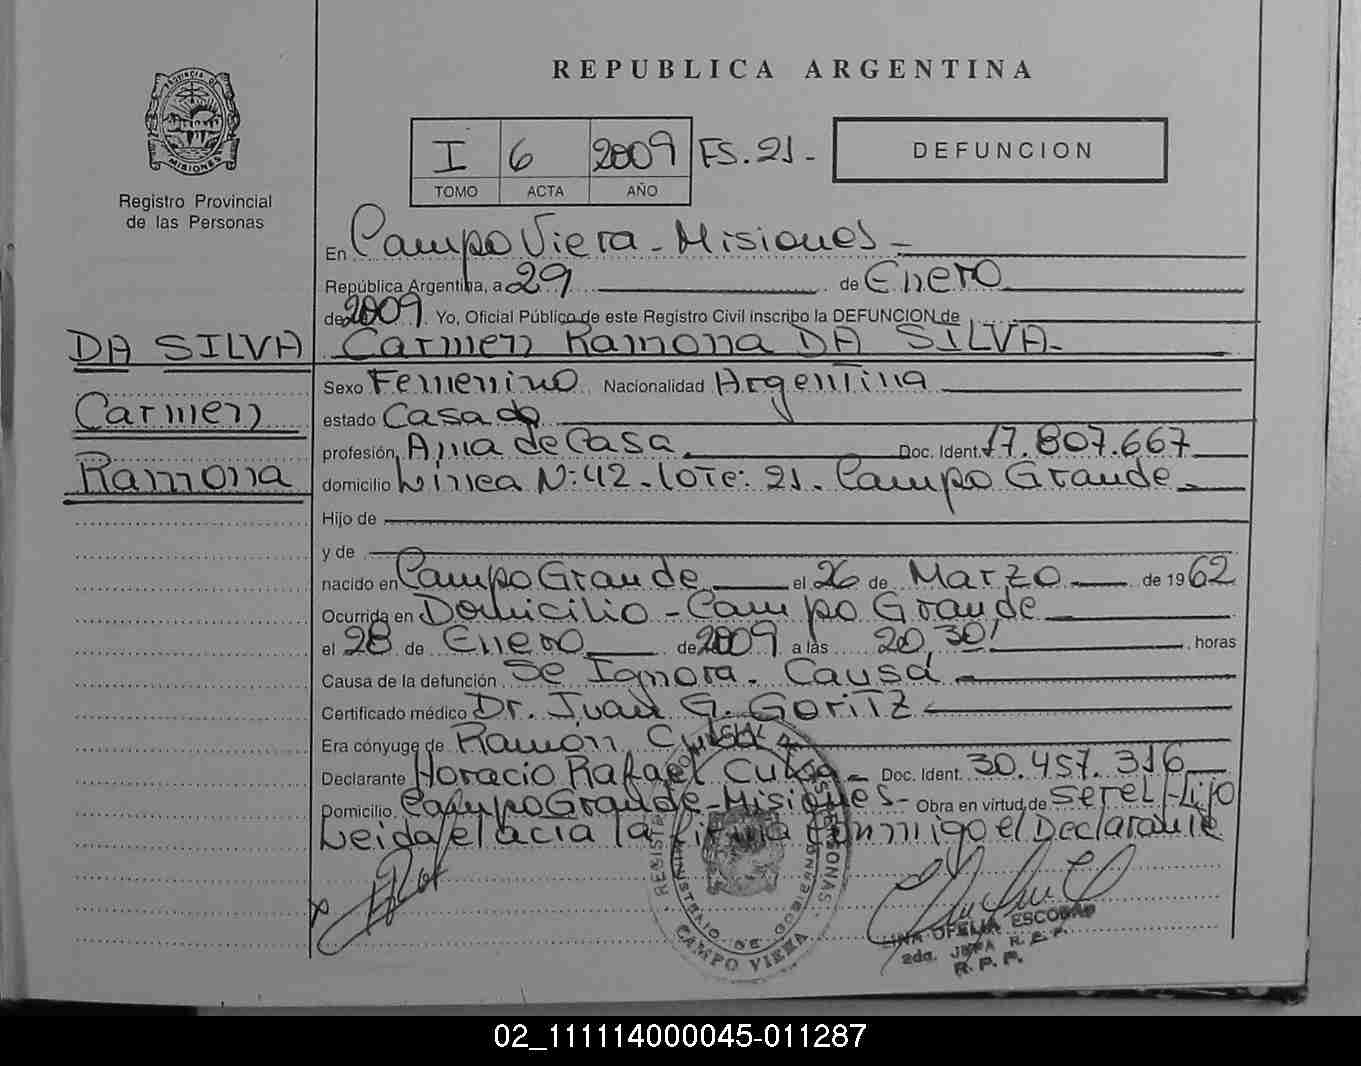 REPUBLICA ARGENTINA
PROVINCIA DE MISIONES
Registro Provincial
de las Personas
I 6 2009 FS. 21-
TOMO ACTA AÑO
DEFUNCION
En Campo Viera - Misiones -
República Argentina, a 29 de Enero
de 2009. Yo, Oficial Público de este Registro Civil inscribo la DEFUNCION de
DA SILVA Carmen Ramona DA SILVA-
Sexo Femenino Nacionalidad Argentina
Carmen
estado Casada
profesión Ama de Casa Doc. Ident. 17.807.667
Ramona
domicilio Linea N: 42 - lote: 21. Campo Grande
Hijo de
y de
nacido en Campo Grande el 26 de Marzo de 1962
Ocurrida en Domicilio - Campo Grande
el 28 de Enero de 2009 a las 20,30' horas
Causa de la defunción Se Ignora. Causa
Certificado médico Dr. Juan G. Goritz
Era cónyuge de Ramón
Declarante Horacio Rafael Doc. Ident. 30.457.316
Domicilio Campo Grande - Misiones - Obra en virtud de ser el Hijo
Leida el acta la firma conmigo el Declarante
CAMPO VIERA
OFELIA ESCOBAR
2da. JEFA R.P.P.
R.P.P.
02_111114000045-011287